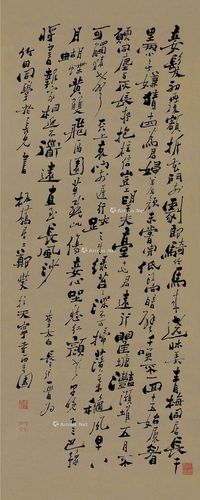 妾髮初覆額折花門前劇郎騎竹馬來遶床弄青梅同居長干
里兩小無嫌猜十四為君婦羞顏未嘗開低頭向暗壁千喚不一回十五始展眉
願同塵與灰長存抱柱信豈上望夫臺十六君遠行瞿塘灩澦堆五月不
可觸猿聲天上哀門前遲行跡一一生綠苔苔深不能掃落葉秋風早八
月胡蝶黃雙飛西園草感此傷妾心坐愁紅顏老早晚下三巴預
將書報家相迎不道遠直至長風沙 李太白長干行一首為
竹田同學老長兄 板橋居士鄭燮